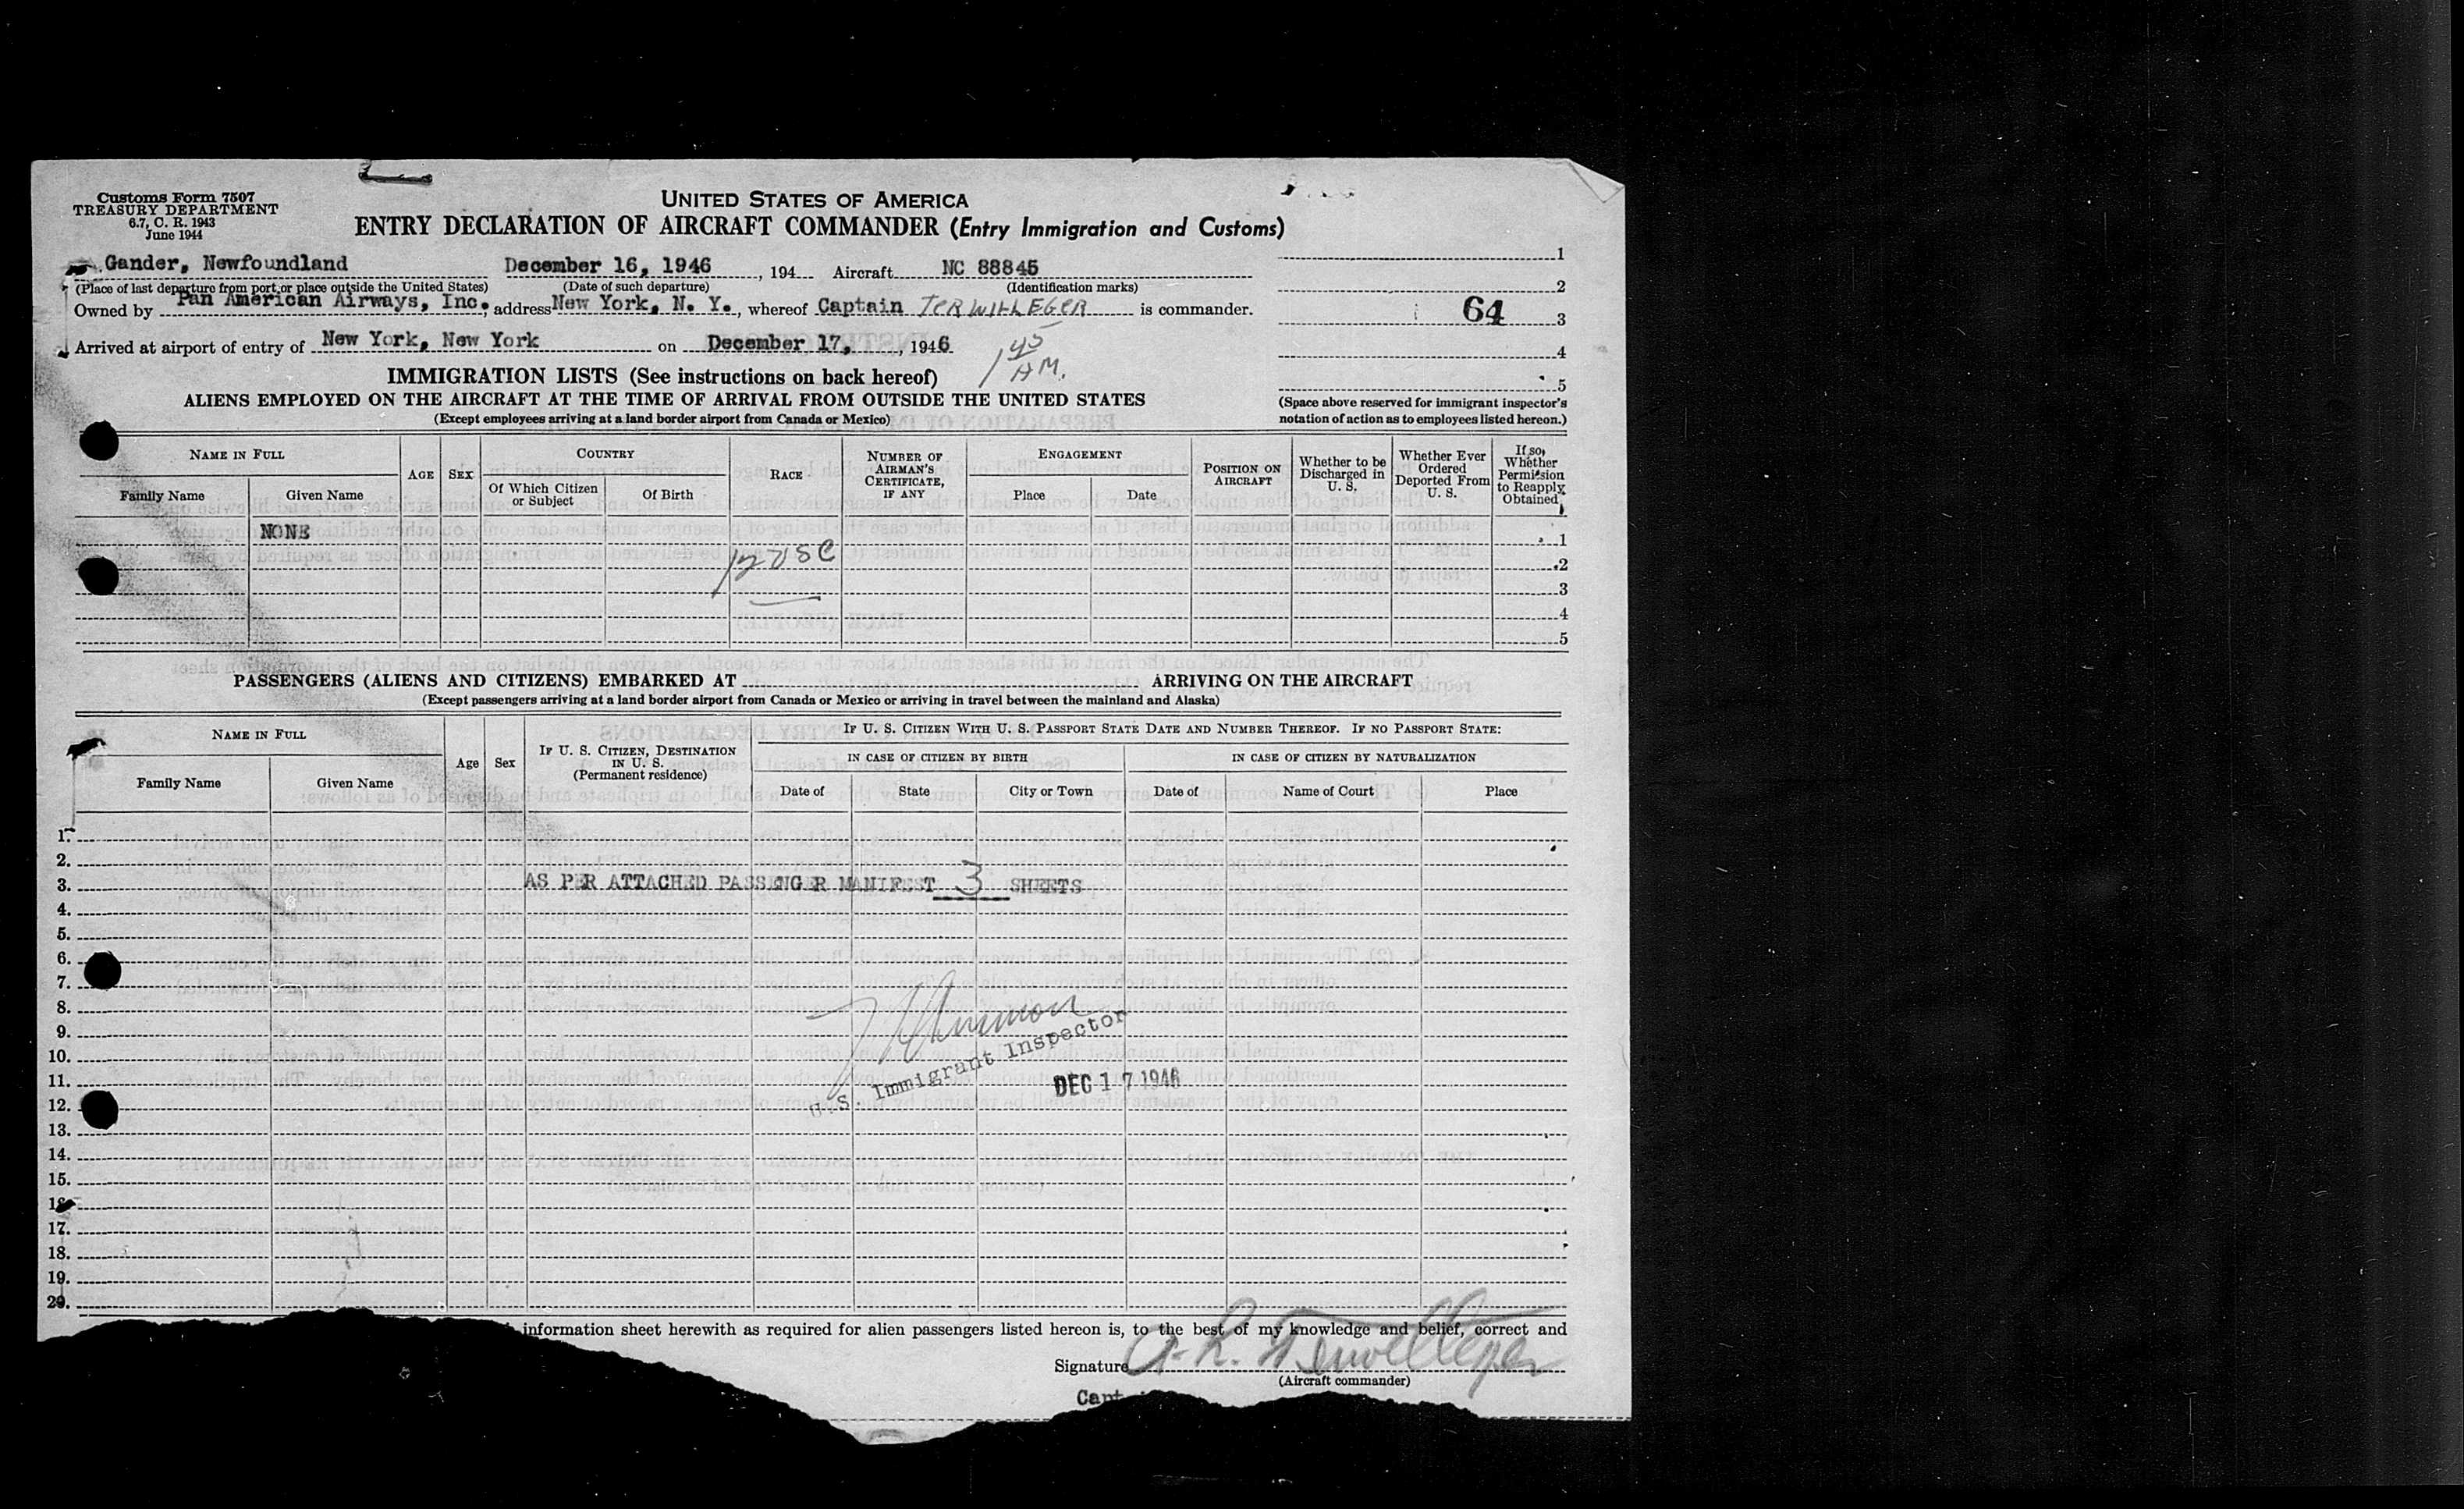 Customs Form 7507
TREASURY DEPARTMENT
6.7, C. R. 1943
June 1944
UNITED STATES OF AMERICA
ENTRY DECLARATION OF AIRCRAFT COMMANDER (Entry Immigration and Customs)
Gander, Newfoundland December 16, 1946, 194 Aircraft NC 88845
(Place of last departure from port or place outside the United States) (Date of such departure) (Identification marks)
Owned by Pan American Airways, Inc., address New York, N. Y., whereof Captain TERWILLEGER is commander.
Arrived at airport of entry of New York, New York on December 17, , 1946
1 45 AM.
1
2
64 3
4
5
(Space above reserved for immigrant inspector's
notation of action as to employees listed hereon.)
IMMIGRATION LISTS (See instructions on back hereof)
ALIENS EMPLOYED ON THE AIRCRAFT AT THE TIME OF ARRIVAL FROM OUTSIDE THE UNITED STATES
(Except employees arriving at a land border airport from Canada or Mexico)
NAME IN FULL
Family Name
Given Name
AGE
SEX
COUNTRY
Of Which Citizen or Subject
Of Birth
RACE
NUMBER OF AIRMAN'S CERTIFICATE, IF ANY
ENGAGEMENT
Place
Date
POSITION ON AIRCRAFT
Whether to be Discharged in U. S.
Whether Ever Ordered Deported From U. S.
If so, Whether Permission to Reapply Obtained
NONE 1
12 USC 2
3
4
5
PASSENGERS (ALIENS AND CITIZENS) EMBARKED AT ARRIVING ON THE AIRCRAFT
(Except passengers arriving at a land border airport from Canada or Mexico or arriving in travel between the mainland and Alaska)
NAME IN FULL
Family Name
Given Name
Age
Sex
IF U. S. CITIZEN, DESTINATION IN U. S.
(Permanent residence)
IF U. S. CITIZEN WITH U. S. PASSPORT STATE DATE AND NUMBER THEREOF. IF NO PASSPORT STATE:
IN CASE OF CITIZEN BY BIRTH
Date of
State
City or Town
IN CASE OF CITIZEN BY NATURALIZATION
Date of
Name of Court
Place
1.
2.
3. AS PER ATTACHED PASSENGER MANIFEST 3 SHEETS
4.
5.
6.
7.
8.
9.
10.
11.
12.
U.S. Immigrant Inspector
DEC 17 1946
13.
14.
15.
16.
17.
18.
19.
20.
information sheet herewith as required for alien passengers listed hereon is, to the best of my knowledge and belief, correct and
Signature A. L. Terwilleger
(Aircraft commander)